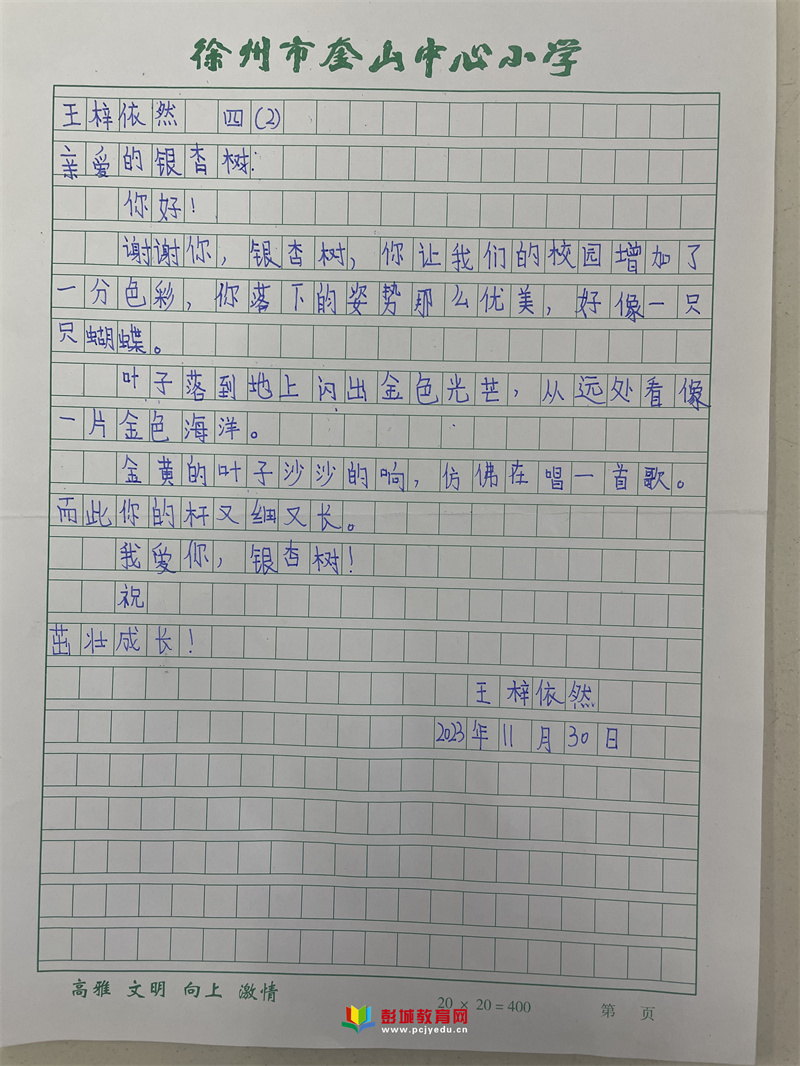 徐州市奎山中心小学
王梓依然 四(2)
亲爱的银杏树:
你好!
谢谢你，银杏树，你让我们的校园增加了
一分色彩，你落下的姿势那么优美，好像一只
只蝴蝶。
叶子落到地上闪出金色光芒，从远处看像
一片金色海洋。
金黄的叶子沙沙的响，仿佛在唱一首歌。
而此你的杆又细又长。
我爱你，银杏树!
祝
茁壮成长!
王梓依然
2023年11月30日
高雅 文明 向上 激情
20 × 20 = 400
第 页
彭城教育网
www.pcjyedu.cn